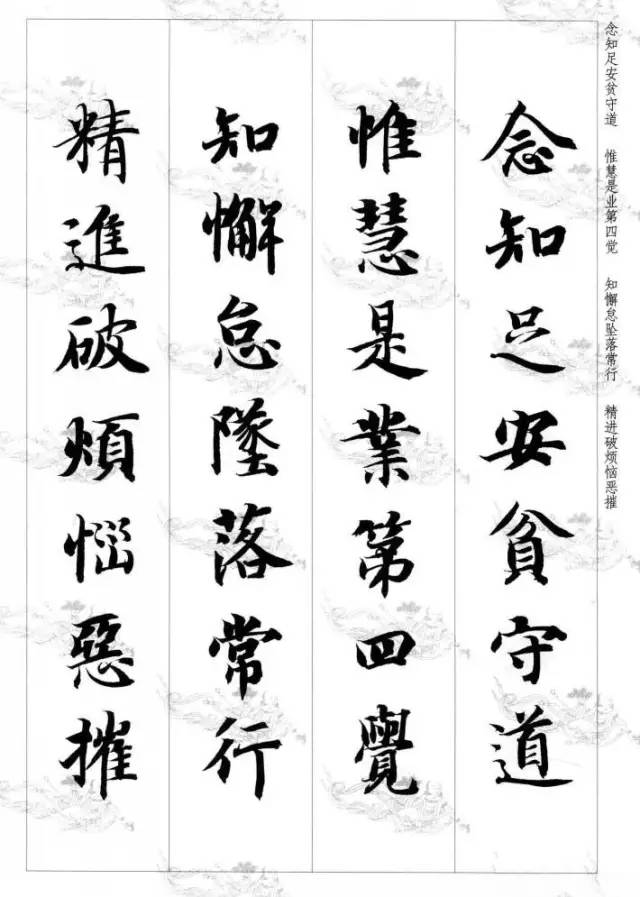 念知足安贫守道 惟慧是业第四觉 知懈怠坠落常行 精进破烦恼恶摧
念知足安貧守道
惟慧是業第四覺
知懈怠墜落常行
精進破煩惱惡摧